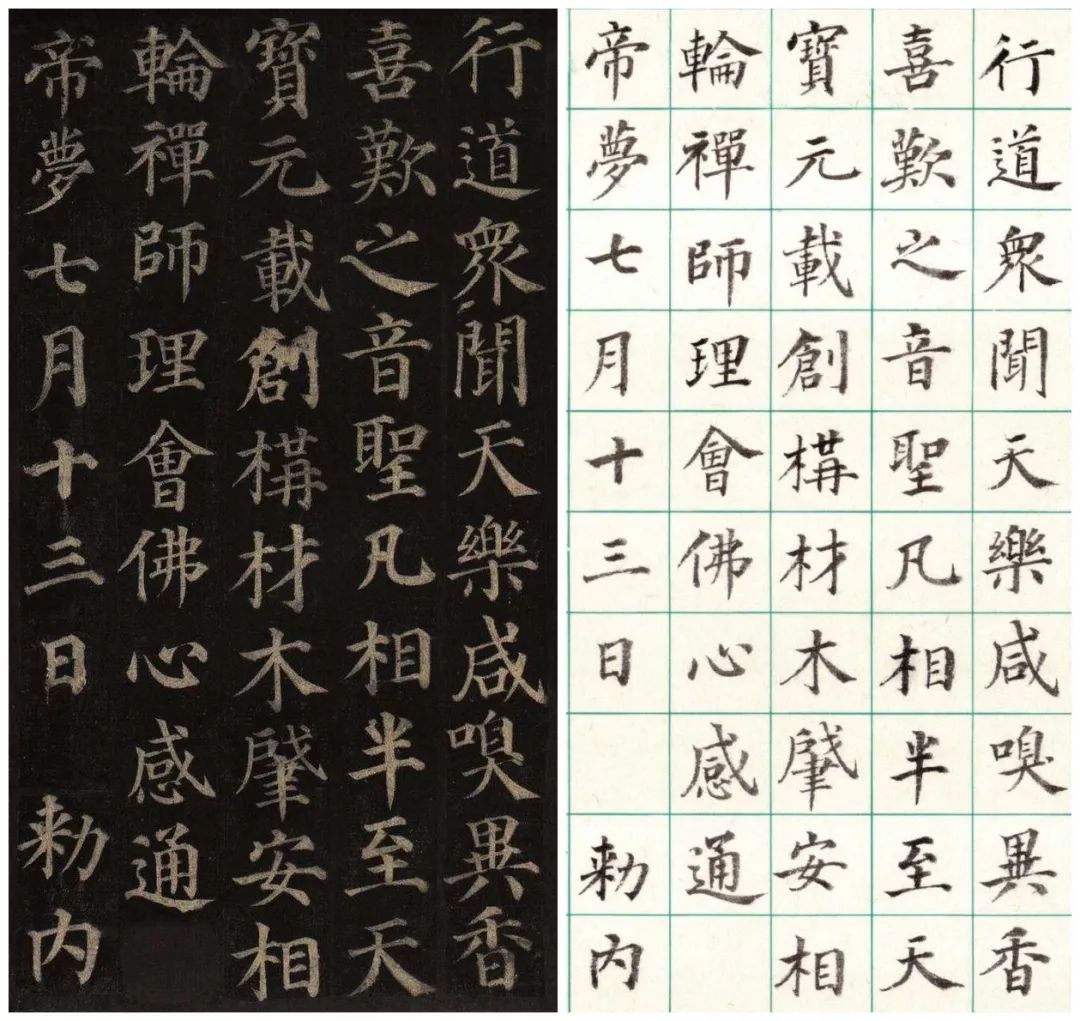 行道衆聞天樂咸嗅異香
喜歎之音聖凡相半至天
寶元載創構材木肇安相
輪禪師理會佛心感通
帝夢七月十三日 勅内
行道衆聞天樂咸嗅異香
喜歎之音聖凡相半至天
寶元載創構材木肇安相
輪禪師理會佛心感通
帝夢七月十三日 勅内